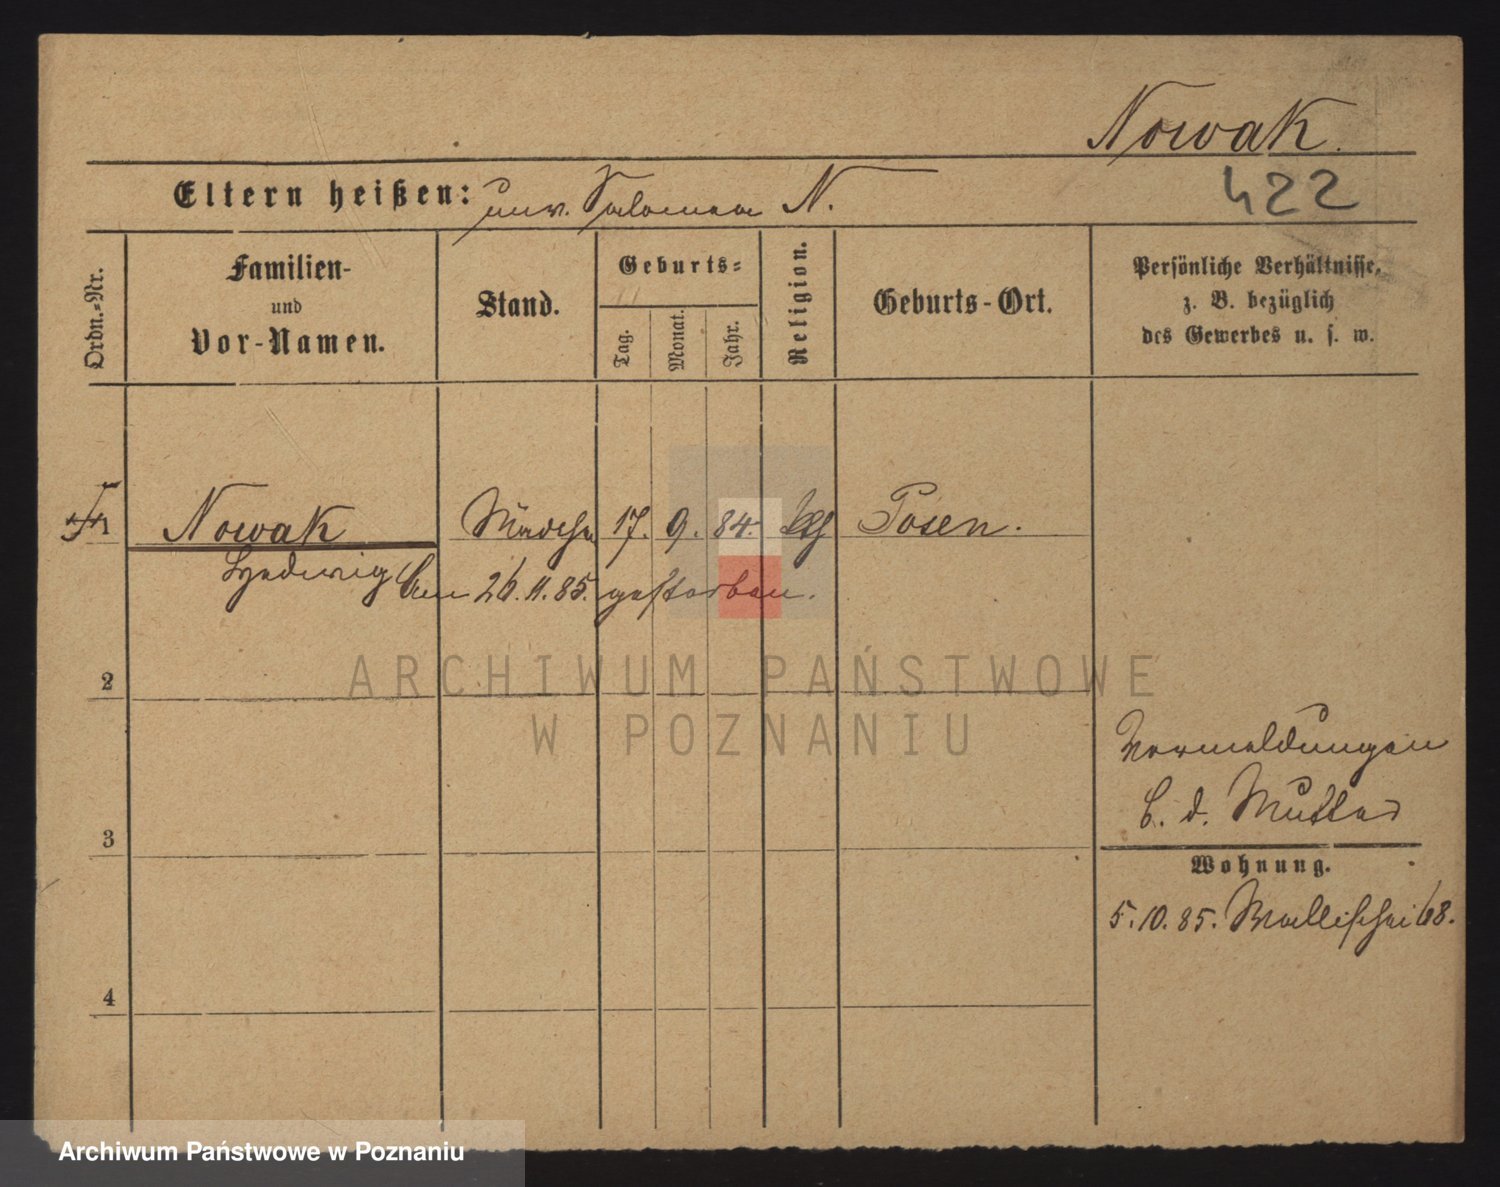 Nowak.
Eltern heißen: unv. Salomea N.
422
Ordn.-Nr.
Familien-
und
Vor-Namen.
Stand.
Geburts=
Tag.
Monat.
Jahr.
Religion.
Geburts-Ort.
Persönliche Verhältnisse,
z. B. bezüglich
des Gewerbes u. s. w.
1 Nowak Mädchen 17. 9. 84. Posen.
Hedwig Am 26. 11. 85. gestorben.
2
ARCHIWUM PAŃSTWOWE
W POZNANIU
Vermeldungen
b. d. Mutter
3
Wohnung.
5. 10. 85. Wallischei 68.
4
Archiwum Państwowe w Poznaniu